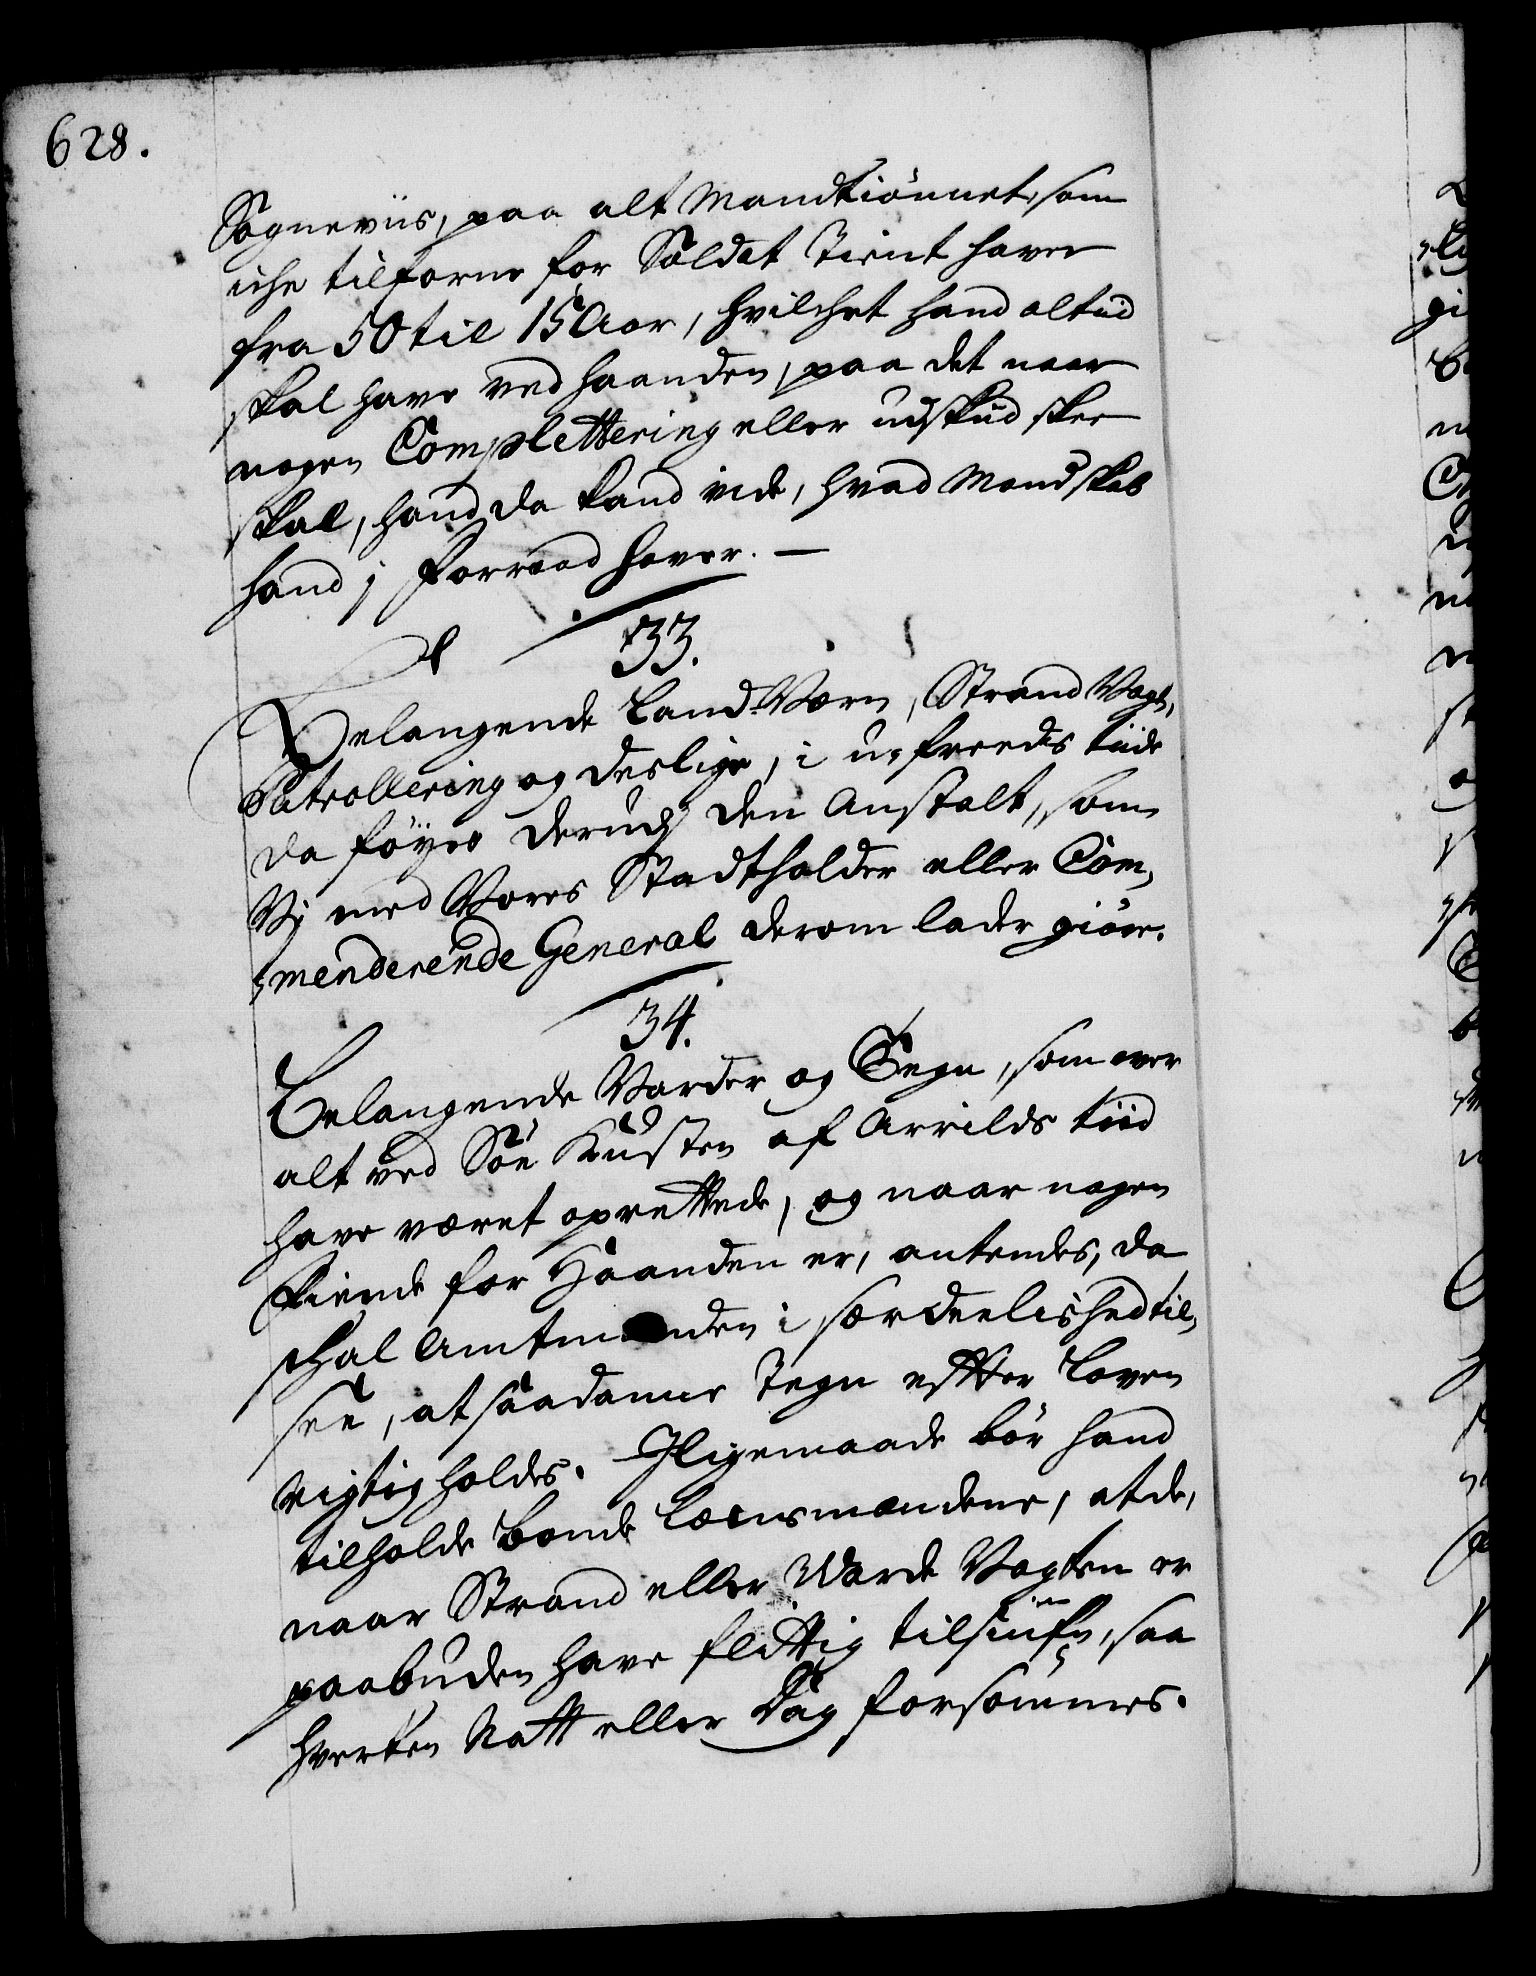 628.
Sogneviis, paa alt Mandkiönnet, som
iche tilforne for Soldat Tient haver
fra 50 til 15 Aar, hvilchet hand altiid
skal have ved haanden, paa det naar
nogen Complettering eller udskud skee
skal, hand da kand vide, hvad Mandskab
hand j Forraad haver. —
33.
Belangende Land-Værn, Strand Vagt,
Patrollering og deslige, i u-freeds tiide
da föyes derudj den Anstalt, som
Vj med Vores Stadtholder eller Com-
menderende General derom lader giöre.
34.
Belangende Varder og Tegn, som over
alt ved Söe Kusten af Arrilds tiid
have været oprettede, og naar nogen
Fiende for Haanden er, antendes, da
schal Amtmanden i særdeelished til-
see, at saadanne Tegn effter Loven
rigtig holdes. Jligemaade bör hand
tilholde bonde Lænsmændene, at de,
naar Strand eller Warde Vagten er
paabuden have flittig tilsiufn, saa
hverken Natt eller Dag forsömmes.